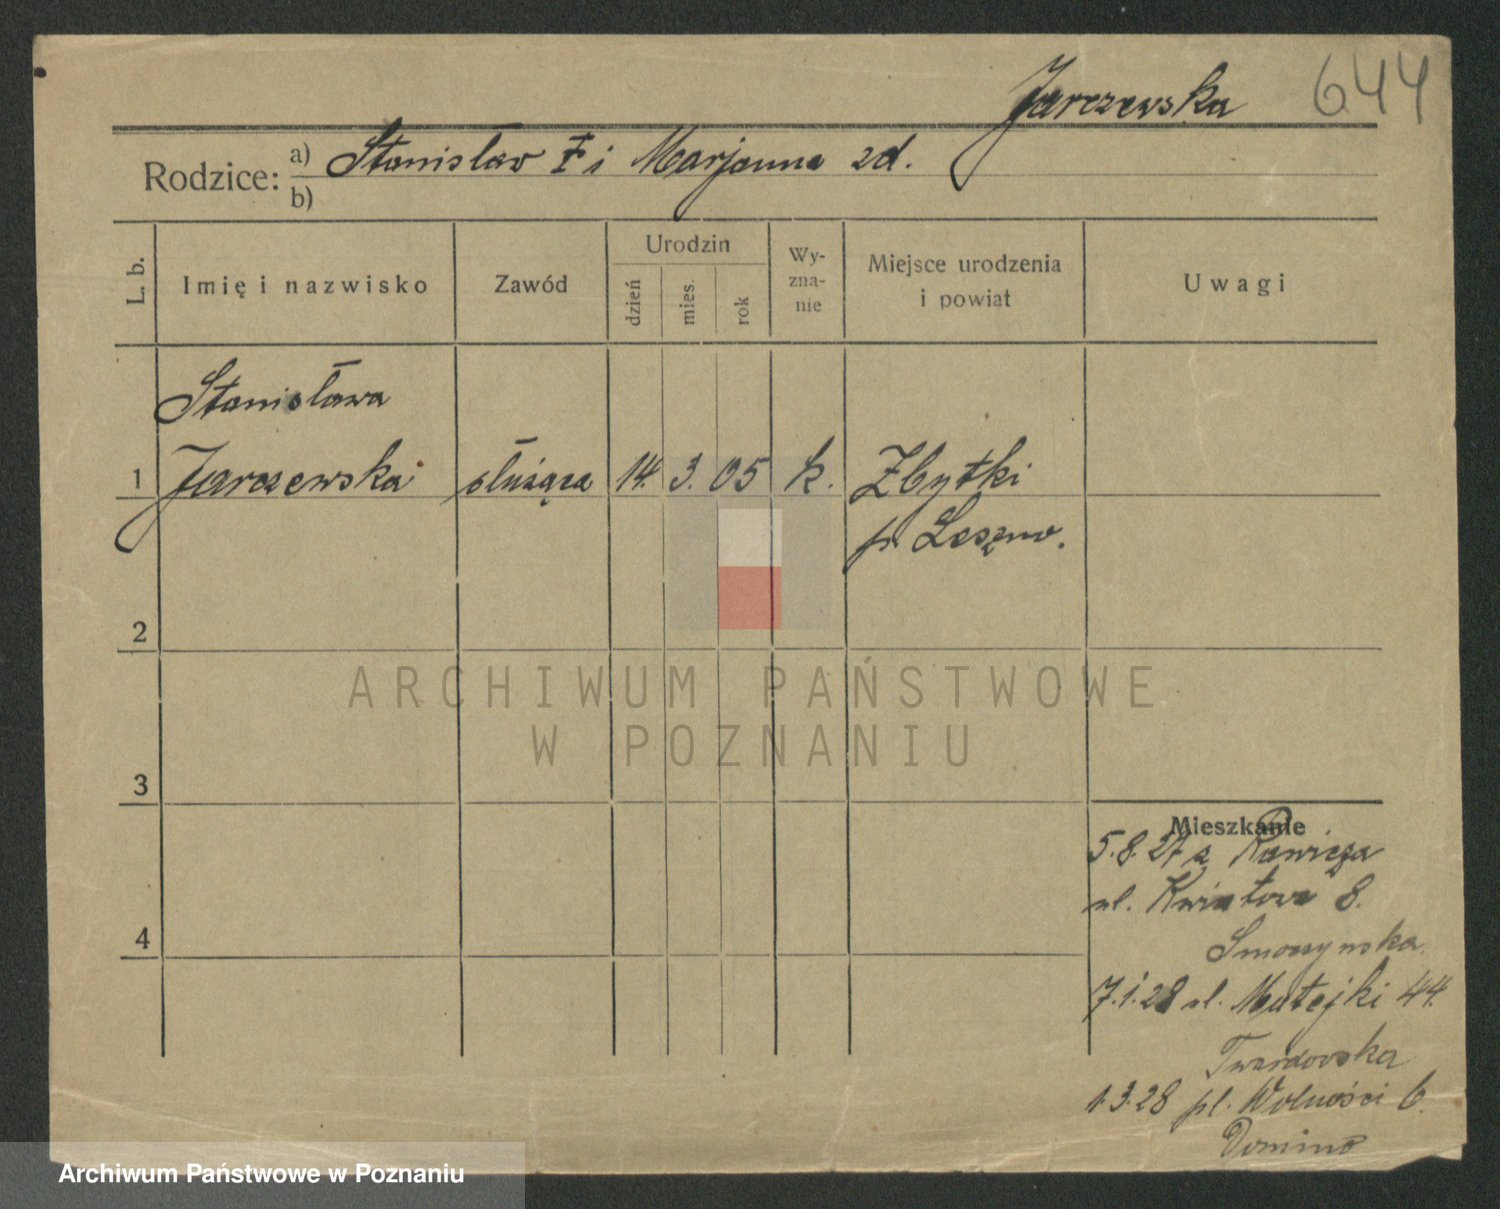 Jarczewska 644
Rodzice: a) Stanisław i Marjanna zd.
b)
L. b.
Imię i nazwisko
Zawód
Urodzin
dzień
mies.
rok
Wy-
zna-
nie
Miejsce urodzenia
i powiat
Uwagi
Stanisława
1 Jarczewska służąca 14. 3. 05 k. Zbytki
p. Leszno.
2
3
4
ARCHIWUM PAŃSTWOWE
W POZNANIU
Mieszkanie
5.8.27 z Rawicza
ul. Kwiatowa 8.
Smoczynska
7.1.28 ul. Matejki 44.
Twardowska
1.3.28 pl. Wolności 6.
Domino
Archiwum Państwowe w Poznaniu